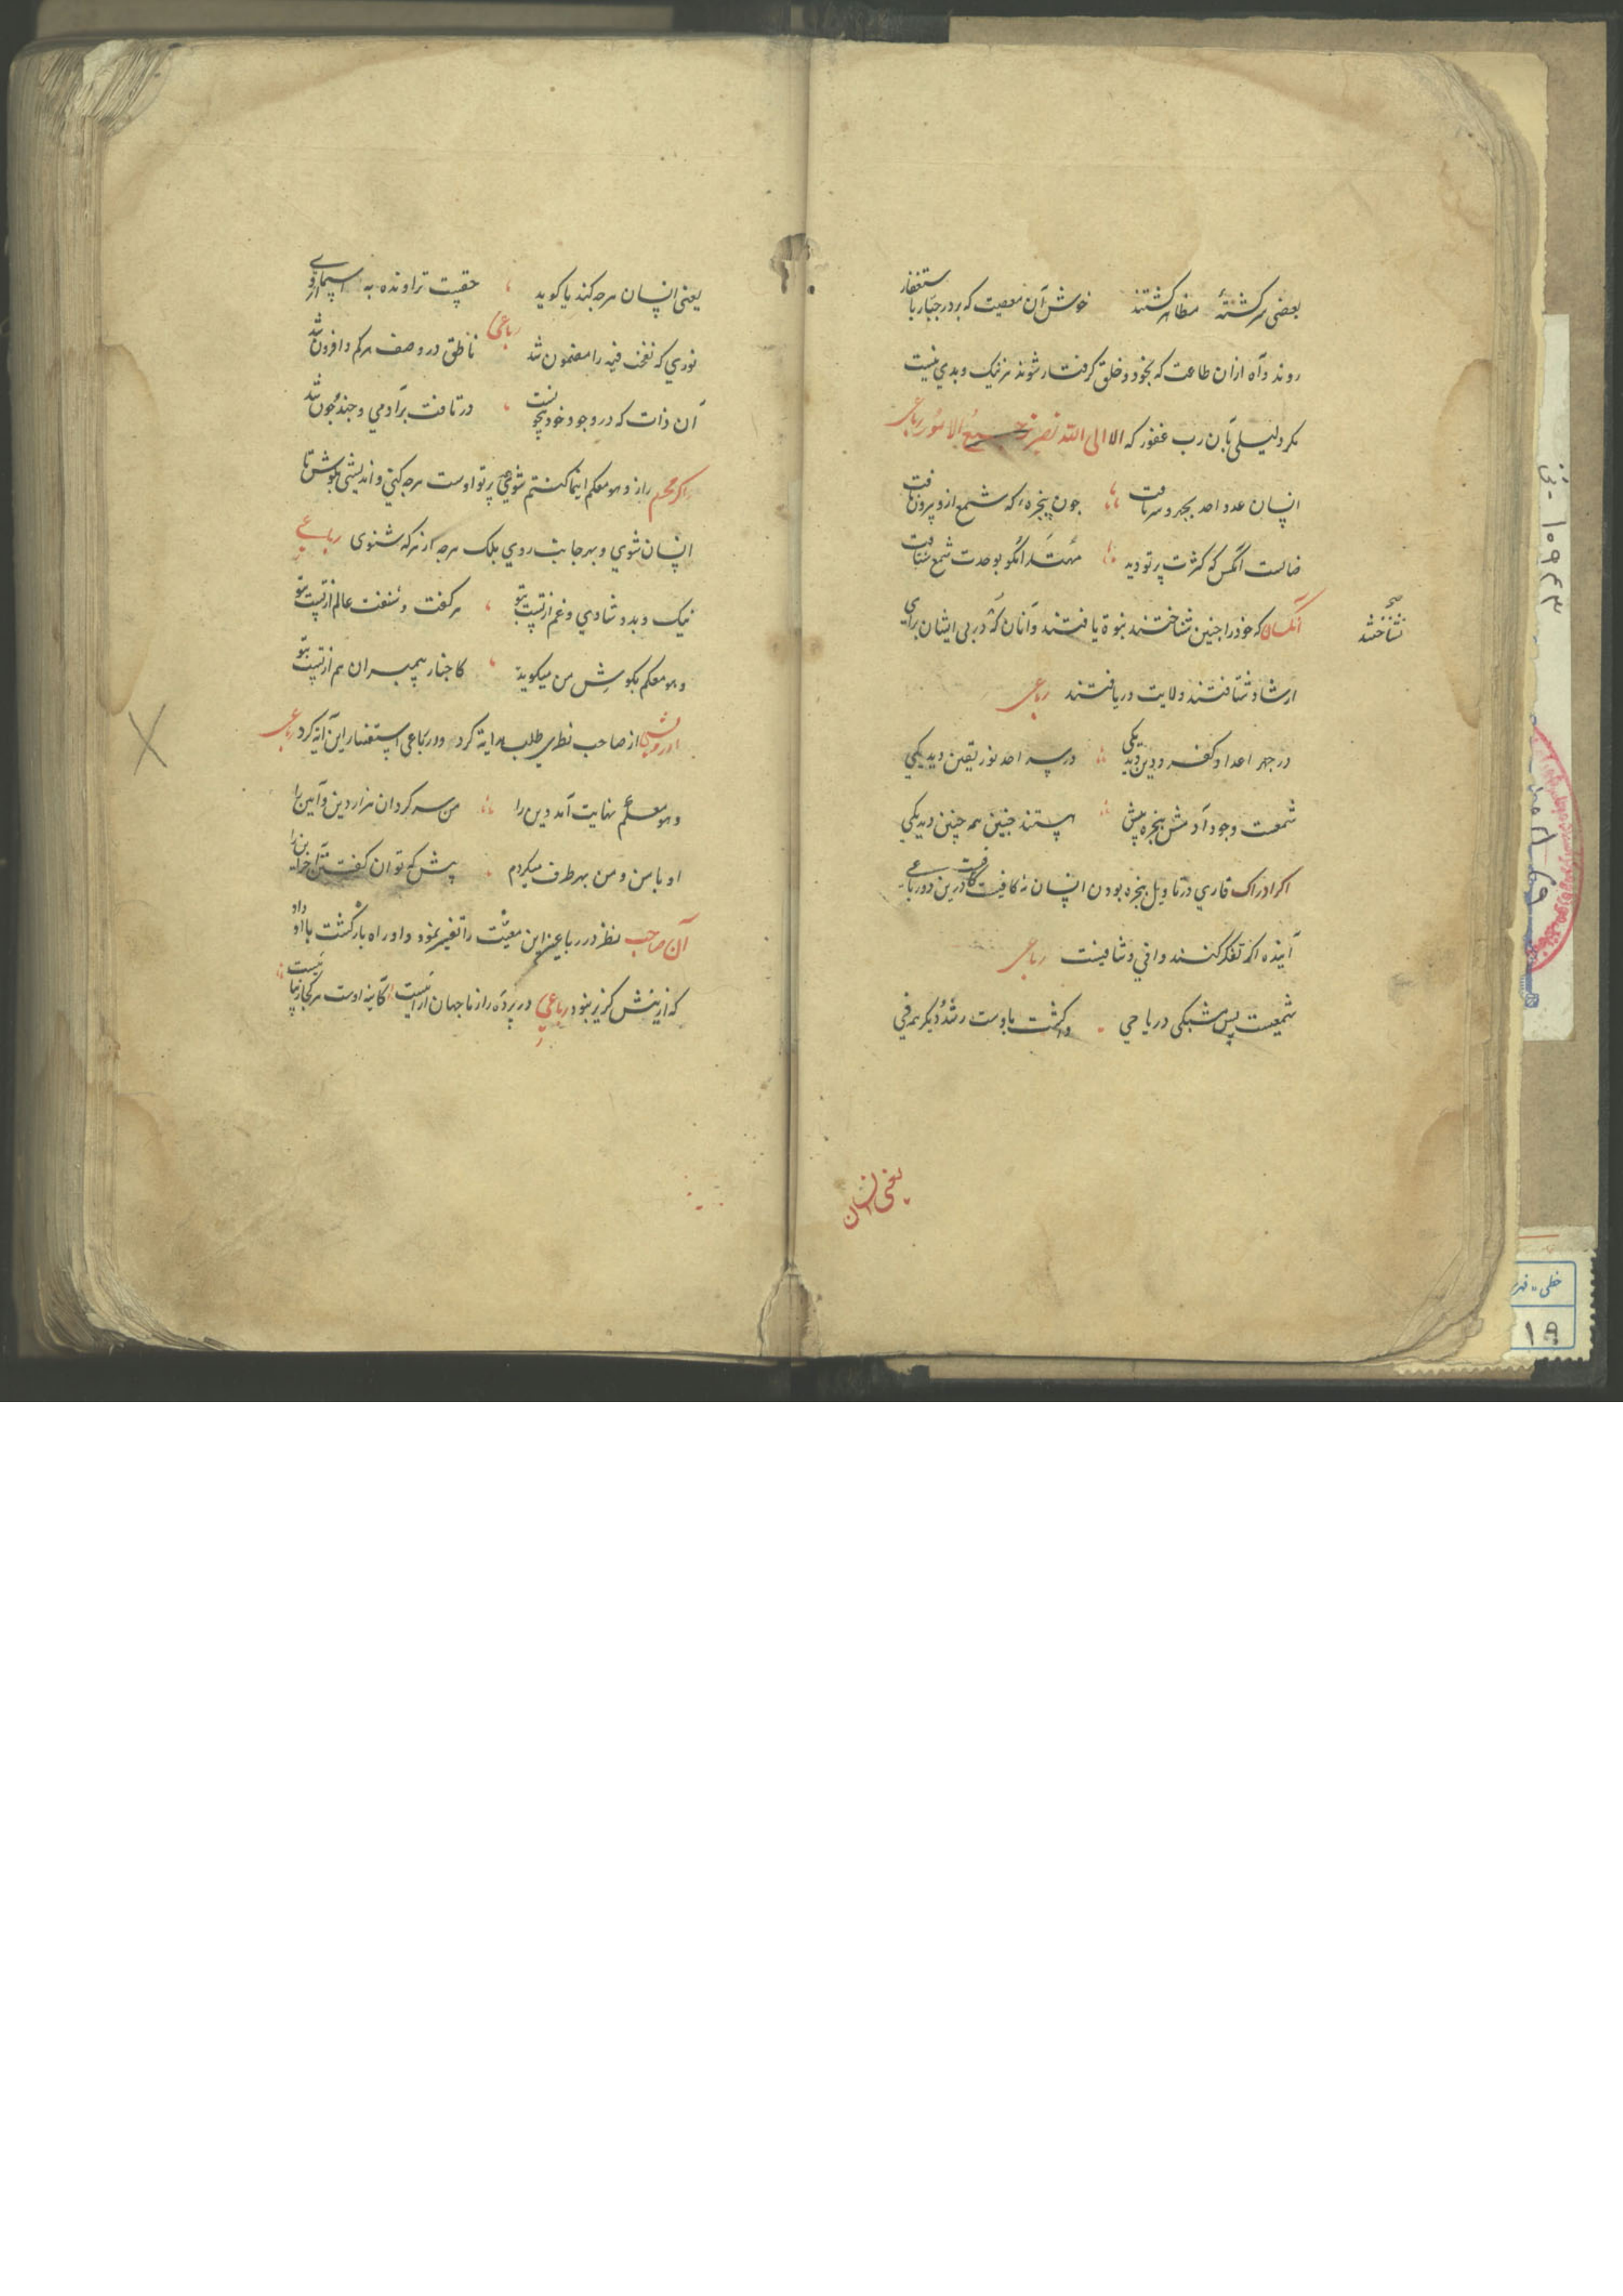 بعضی سرکشتهٔ مظاهر کشتند خوش آن معصیت که بر در جبار با ستغفار
روند و آه ازان طاعت که بخود و خلق کرفتار شوند هر نیک و بدی نیست
مکر دلیلی بآن رب غفور که الا الی الله تصیر الامور رباعی
انسان عدد احد بجهر و سر تافت چون پنجره که شمع ازو بیرون تافت
ضالست انکس که کثرت پرتو دید مهتد انکو بوحدت شمع شتافت
آنکسان که خود را چنین شناختند نبوة یافتند و آنان که در پی ایشان برای
نشناختند صح
ارشاد شتافتند ولایت دریافتند رباعی
در جهر اعداد کفر و دین دید یکی در سر احد نور یقین دید یکی
شمعست وجود آدمش پنجره پیش هستند چنین همه چنین دید یکی
اکر ادراک قاری در تاویل پنجره بودن انسان نه کافیست درین دو رباعی
آینده اکر تفکر کنند وافی و شافیست رباعی
شمعیست پس شبکی دریا حی وا کشت باوست رشد دیکر همه فی
یعنی انسان
یعنی انسان هرچه کند یا کوید حقیست تراونده به اسمای او
رباعی
نوری که نفخت فیه را مضمون شد ناطق در وصف هر کم و افزون شد
آن ذات که در وجود خود بیچونست در تافت بر آدمی و چند و چون شد
اکر محرم راز و هو معکم اینما کنتم شوی پرتو اوست هرچه کنی و اندیشی بکوش تا
انسان شوی و بهر جانب روی بلک هرچه از هرکه شنوی رباعی
نیک و بد و شادی و غم از تست بتو هر کفت و شنفت عالم از تست بتو
و هو معکم بکوش من میکوید کاخبار پیمبران هم از تست بتو
درویشی از صاحب نظری طلب هدایة کرد و در رباعی استفسار این آیه کرد رباعی
و هو معکم نهایت آمد دین را من سر کردان هزار دین و آیین را
او با من و من بهر طرف میکردم پیش که توان کفتن آخر این را
آن صاحب نظر در رباعی این معیت را تفسیر نمود و او را راه بازکشت با او داد
که ازینش کزیر نبود رباعی در پرده راز ما جهان آراییست کآینه اوست هر کجا زیباییست